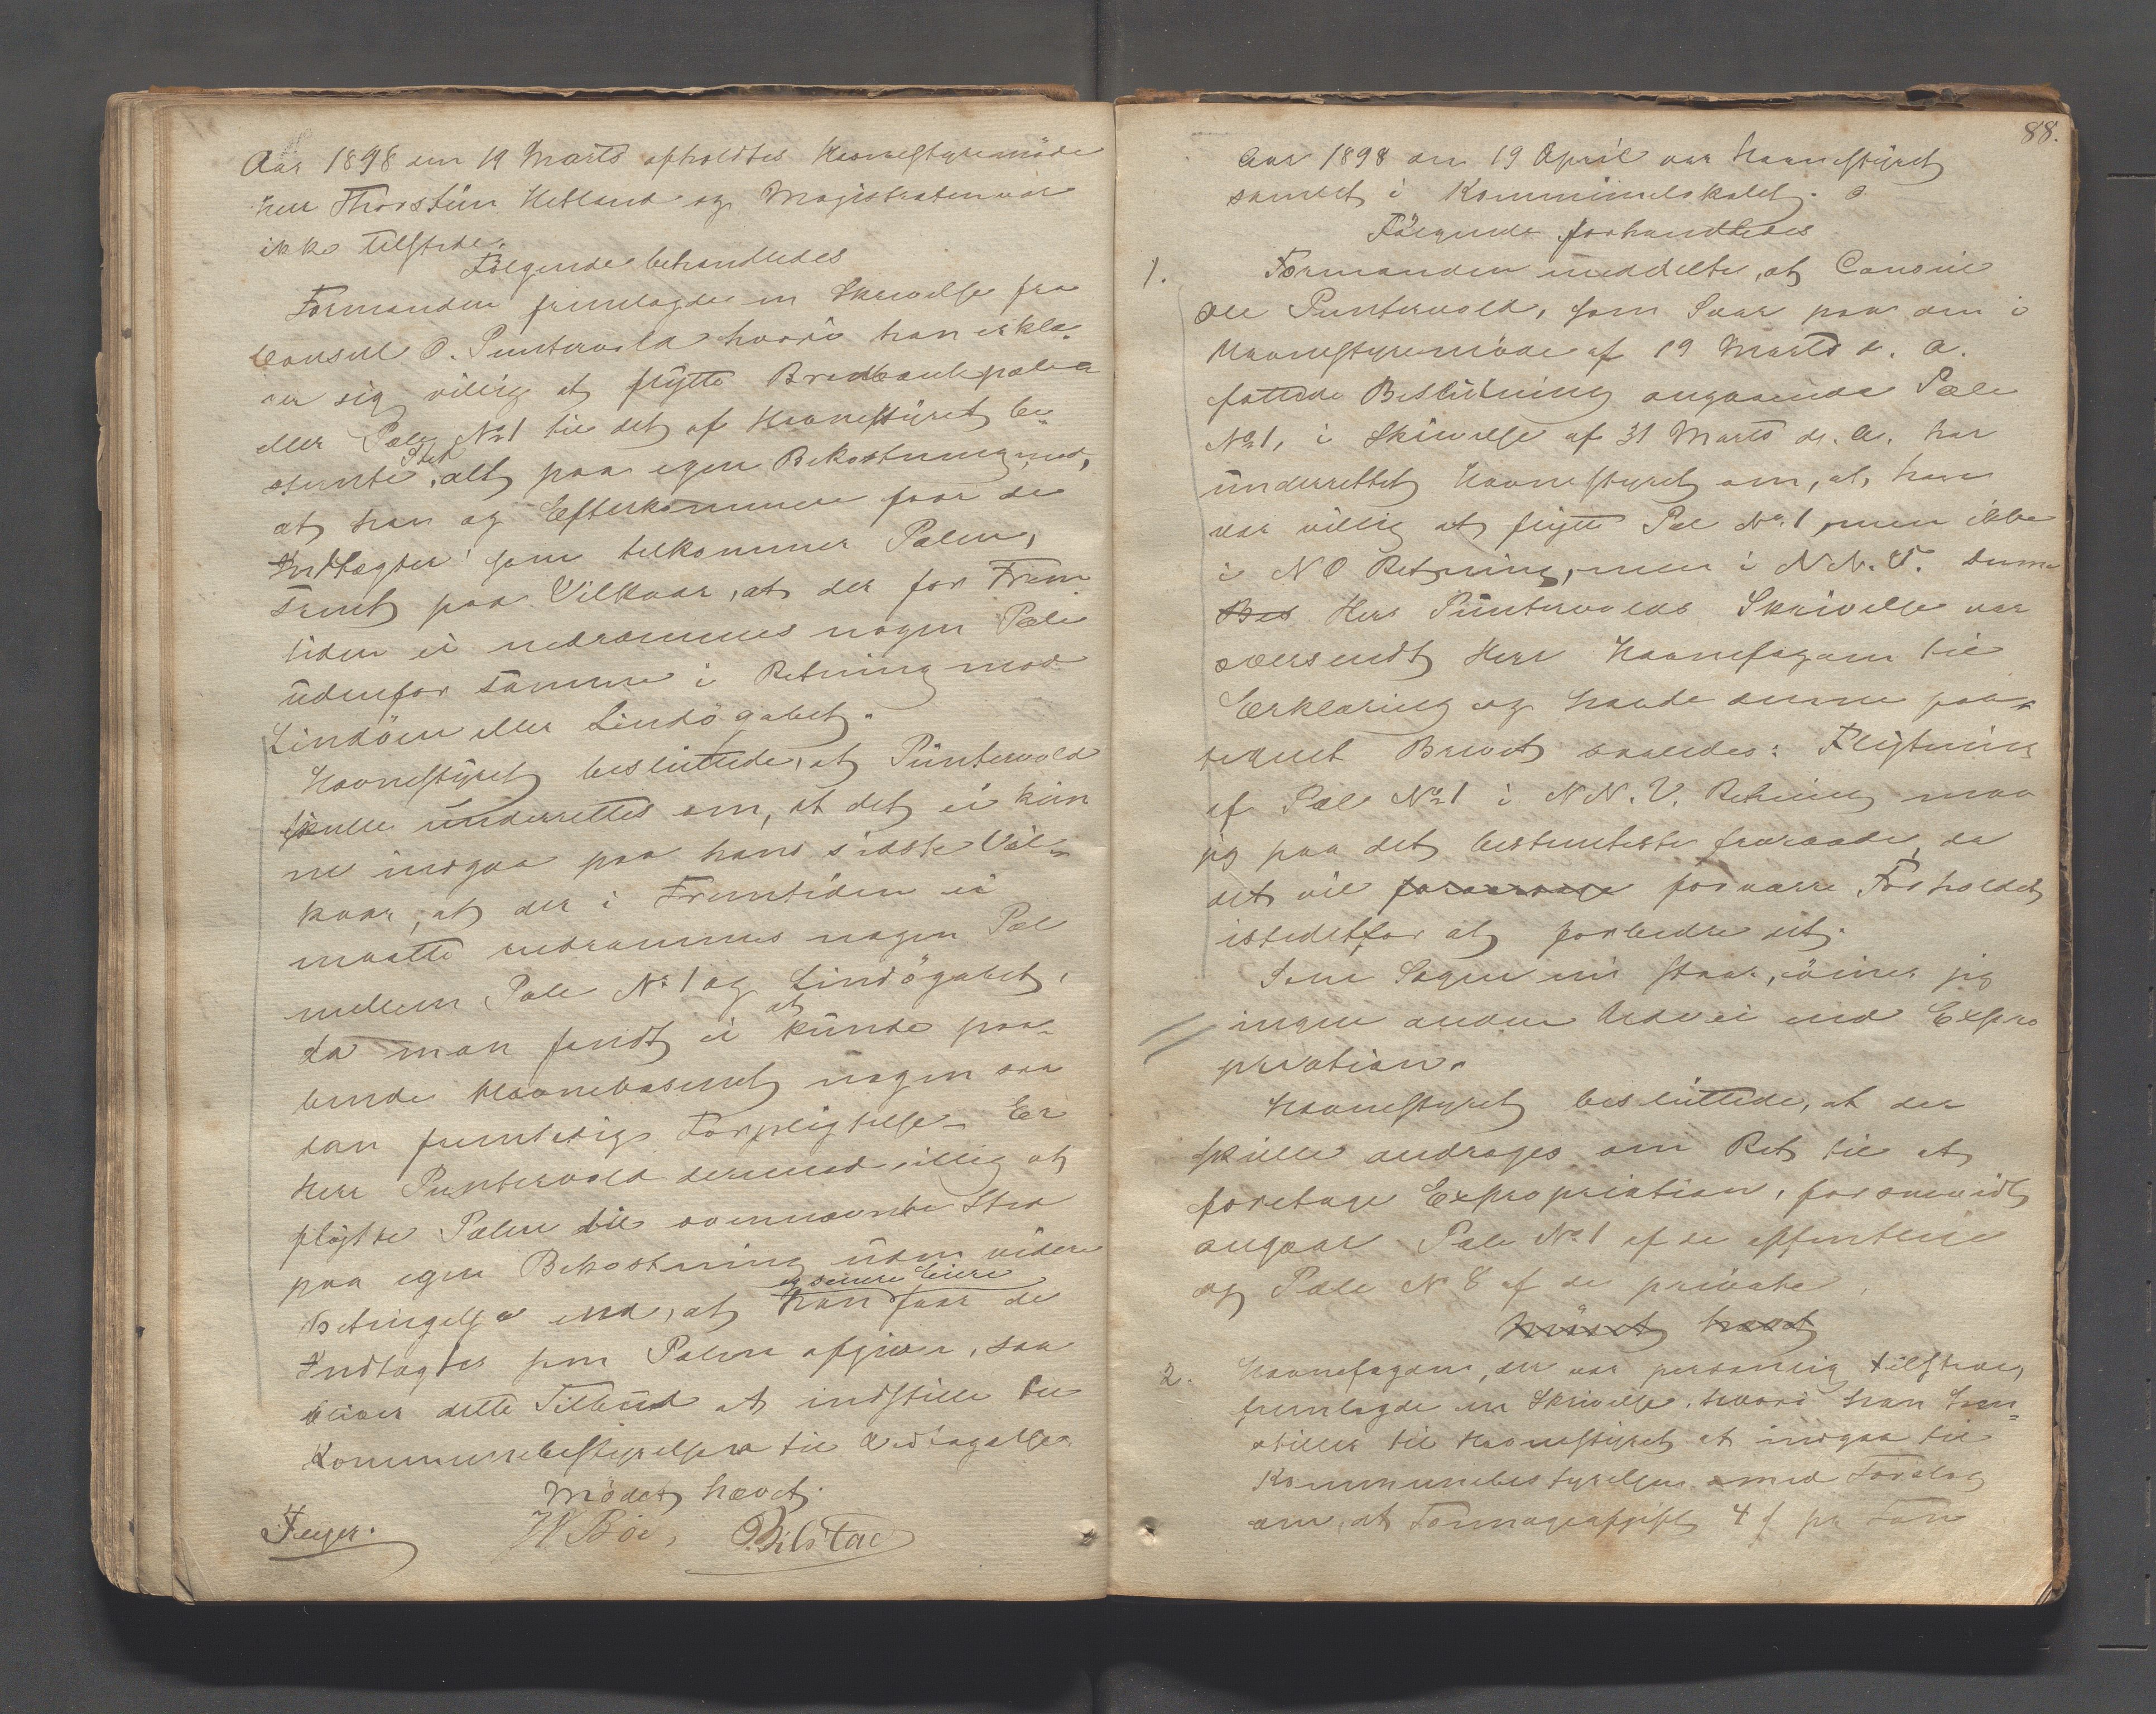 Aar 1898 den 19 Marts afholdtes Havnestyremöde
Herr Thorstein Hetland og Magistraten var
ikke tilstede.
Fölgende behandledes
Formanden fremlagde en Skrivelse fra
Consul O. Puntervold hvori han erklæ-
rer sig villig at flytte Bredbankpælen
eller Pæle No 1 til det af Havnestyret be-
stemte Sted, alt paa egen Bekostning, mod,
at han og Efterkommere faar de
Indtægter som tilkommer Pælen,
samt paa Vilkaar, at der for Frem
tiden ei nedrammes nogen Pæle
udenfor samme i Retning mod
Lindöen eller Lindögabet.
Havnestyret besluttede, at Puntervold
skulle underrettes om, at det ei kun
ne indgaa paa hans sidste Vil-
kaar, at der i Fremtiden ei
maatte nedrammes nogen Pæl
mellem Pæle No 1 og Lindögabet,
da man fandt ei at kunde paa-
binde Havnevæsenet nogen saa
dan fremtidig Forpligtelse. Er
Herr Puntervold dermod villig at
flytte Pælen til ovennævnte Sted
paa egen Bekostning uden videre
Betingelse end, at han og senere Eiere faar de
Indtægter som Pælen afgiver, saa
bliver dette Tilbud at indstille til
Kommunebestyrelsen til Vedtagelse
Mödet hævet.
Feyer. H Böe, Bilstad
88.
Aar 1898 den 19 April var Havnestyret
samlet i Kommunelokalet.
Fölgende forhandledes
1. Formanden meddelte, at Consul
Ole Puntervold, som Svar paa den i
Havnestyremöde af 19 Marts d. A.
fattede Beslutning angaaende Pæle
No 1, i Skrivelse af 31 Marts d. A. har
underrettet Havnestyret om, at han
var villig at flytte Pæl No 1, men ikke
i NO Retning, men i N.N.V. Denne
Bes Herr Puntervolds Skrivelse var
oversendt Herr Havnefogden til
Erklæring og havde denne paa-
tegnet Brevet saaledes: Flytning
af Pæl No 1 i N N. V. Retning maa
jeg paa det bestemteste fraraade, da
det vil forværre Forholdet
istedetfor at forbedre det.
Som Sagen nu staar, öiner jeg
ingen anden Udvei end Expro
priation.
Havnestyret besluttede, at der
skulle andrages om Ret til at
foretage Expropriation, forsaavidt
angaar Pæle No 1 af de offentlige
og Pæle N 8 af de private.
Mödet hævet
2. Havnefogden, der var personlig tilstede,
fremlagde en Skrivelse, hvori han hen-
stiller til Havnestyret at indgaa til
Kommunebestyrelsen med Forslag
om, at Tonnageafgift 4 f pr Ton